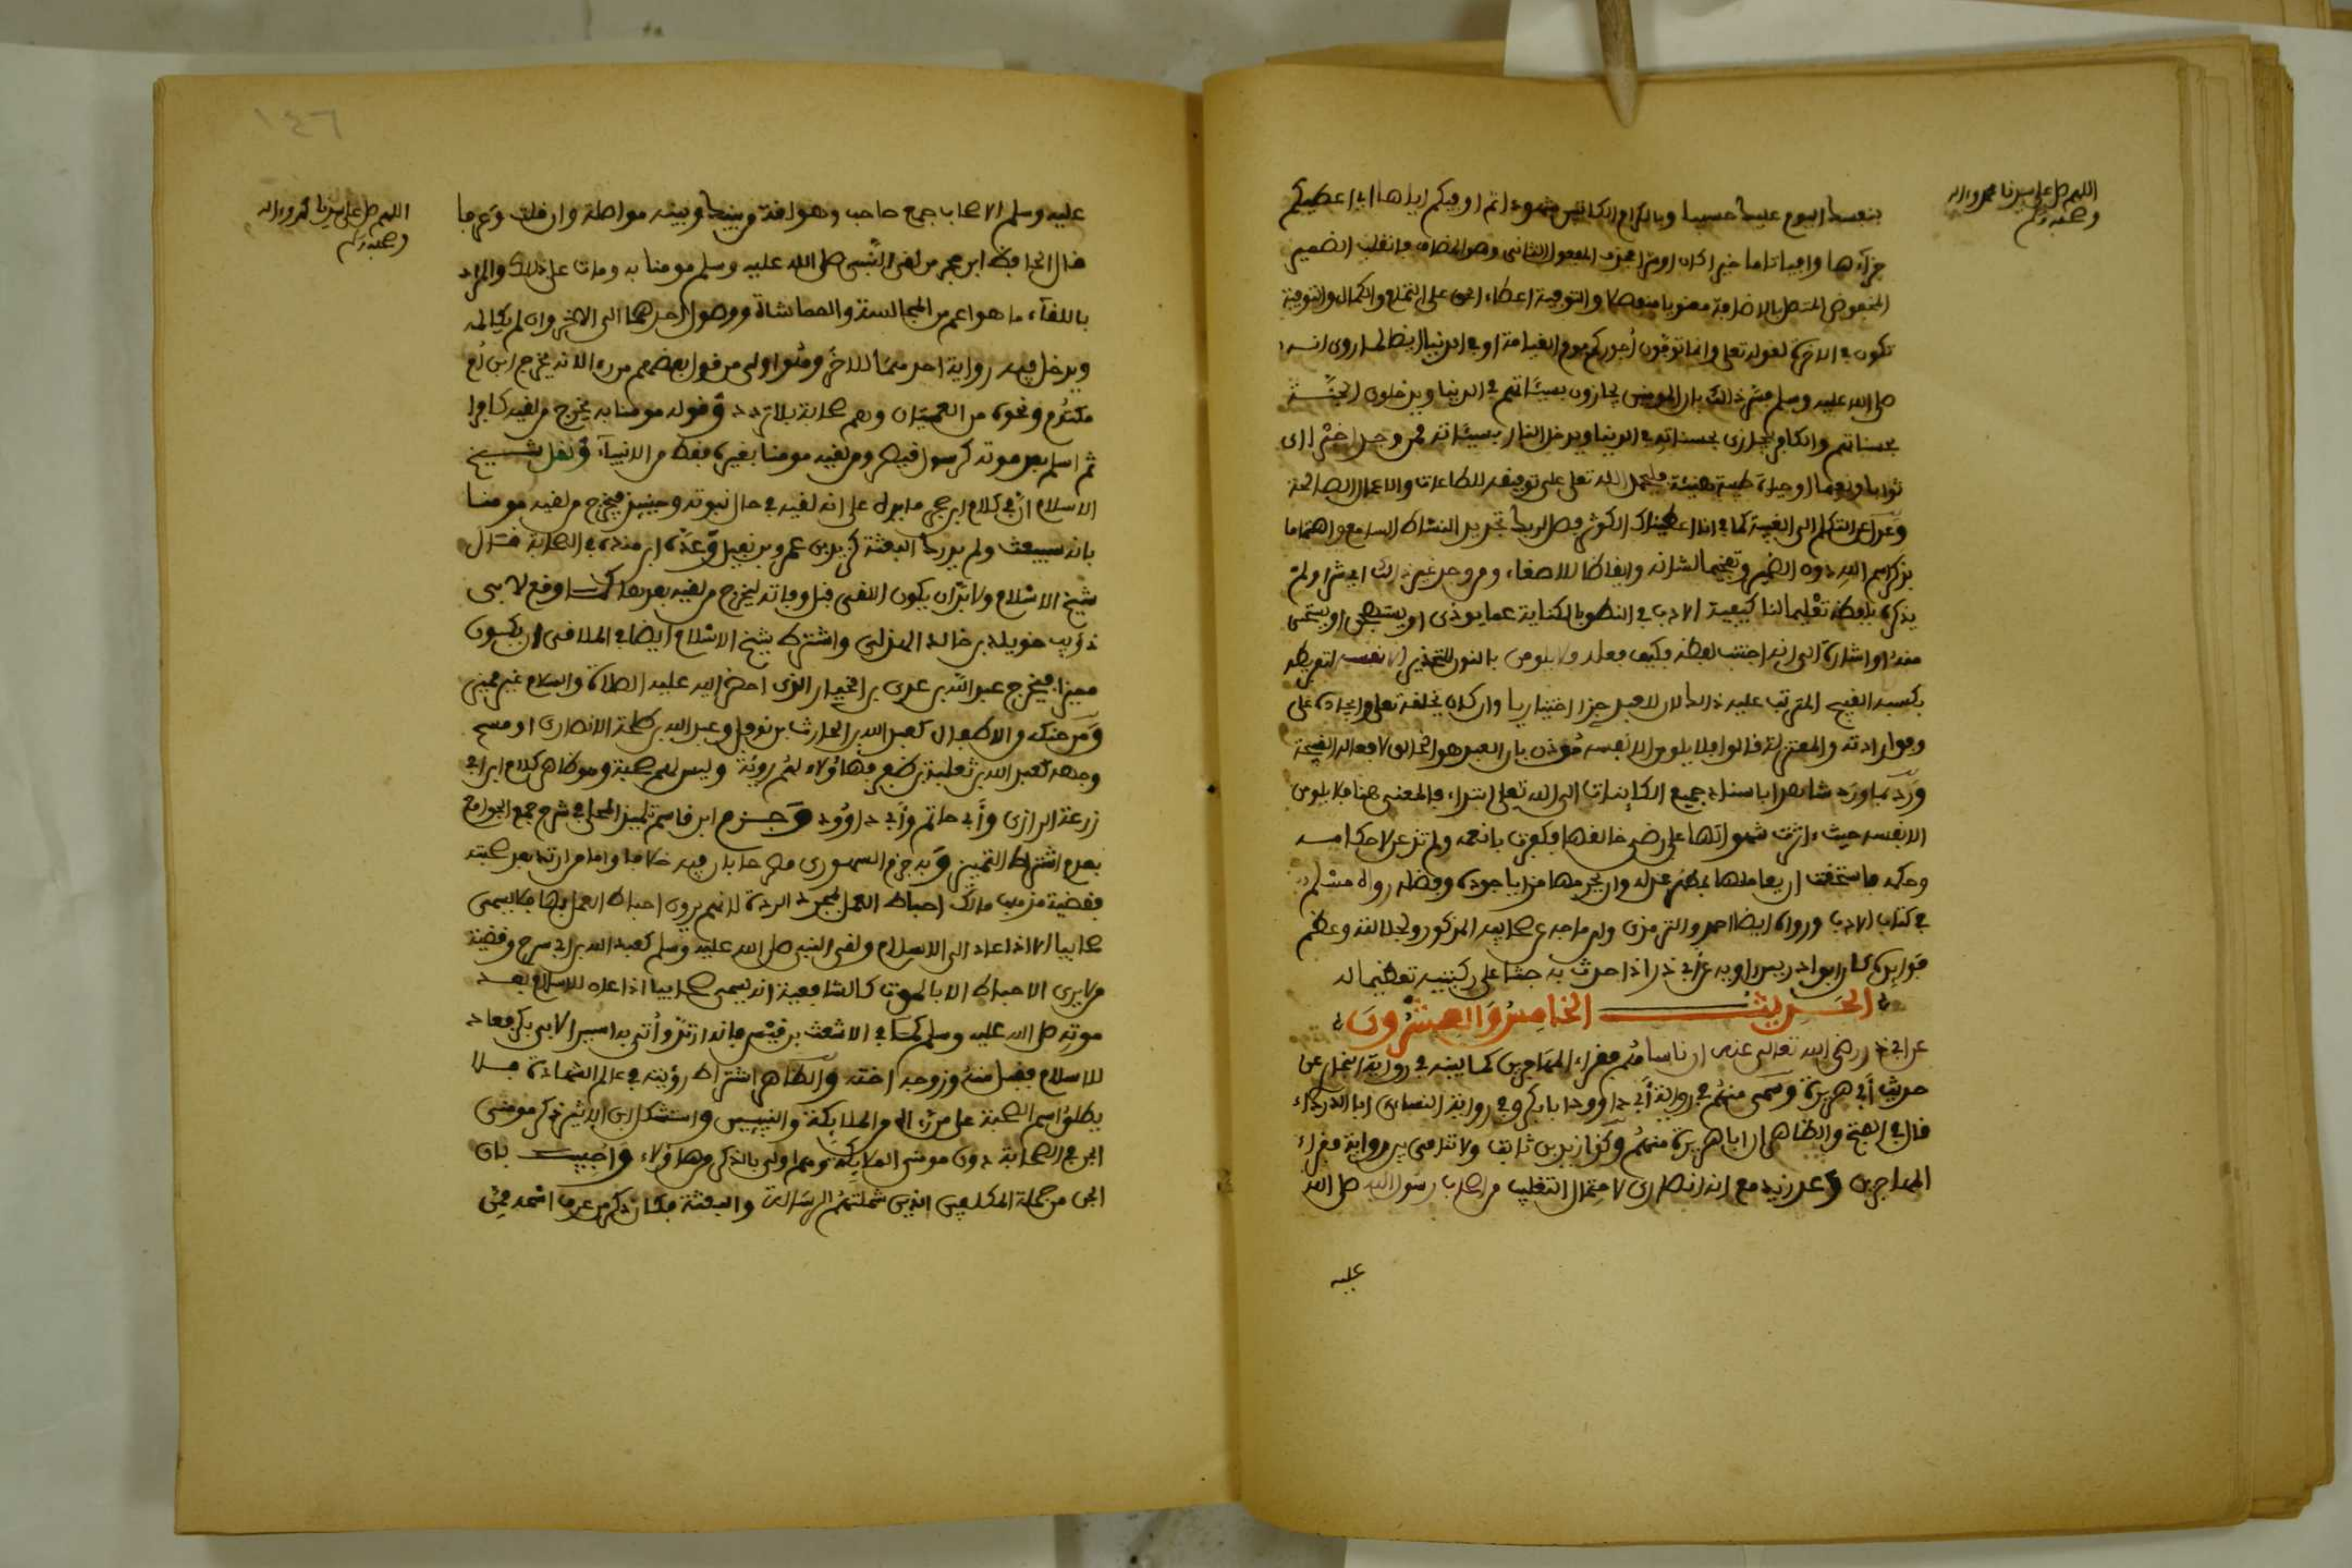 اللهم صل على سيدنا محمد واله
وصحبه وسلم
بنفسك اليوم عليك حسيبا وبالكرام الكاتبين شهودا ثم اوفيكم اياها اي اعطيكم
جزاءها وافيا تاما خيرا كان او شرا فحذف المفعول الثاني وهو المضاف فانقلب الضمير
المخفوض المتصل بالاضافة منصوبا منفصلا والتوفية اعطاء الحق على التمام والكمال والتوفية
تكون في الاخرة لقوله تعلى وانما توفون أجوركم يوم القيامة او في الدنيا ايضا لما روي انه
صلى الله عليه وسلم فسر ذلك بان المومنين يجازون بسيئاتهم في الدنيا ويدخلون الجنة
بحسناتهم والكافر يجازى بحسناته في الدنيا ويدخل النار بسيئاته فمن وجد خيرا اي
ثوابا ونعيما او حياة طيبة هنيئة فليحمل الله تعلى على توفيقه للطاعات والاعمال الصالحة
وعدل عن التكلم الى الغيبة كما في انا اعطيناك الكوثر فصل لربك تجديد النشاط السامع واهتماما
بذكر اسم الله دون الضمير وتفخيما لشانه وايقاظا للاصغاء ومن وجد غير ذلك اي شرا ولم
يذكره بلفظه تعليما لنا كيفية الادب في النطق بالكناية عما يوذي او يستهجن او يستحيى
منه او اشارة الى انه اجتنب لفظه فكيف فعله فلا يلومن بالنون للتحذير الا نفسه لتفريطه
بكسبه القبيح المترتب عليه ذلك لان للعبد جزءا اختياريا وان كان بخلقه تعلى وايجاده على
وفق ارادته والمعتزلة قالوا فلا يلومن الا نفسه مؤذن بان العبد هو الخالق لافعاله القبيحة
ورد بما ورد شاهدا باسناد جميع الكاينات الى الله تعلى ابتداء فالمعنى هنا فلا يلومن
الا نفسه حيث ءاثرت شهواتها على رضى خالقها فكفرت بانعمه ولم تذعن لاحكامه
وحكمه فاستحقت ان يعاملها بمظهر عدله وان يحرمها مزايا جوده وفضله رواه مسلم
في كتاب الادب ورواه ايضا احمد والترمذي وابن ماجه عن صحابيه المذكور ولجلالته وعظم
فوايده كان ابو ادريس راويه عن ابي ذر اذا حدث به جثا على ركبتيه تعظيما له
الحديث الخامس والعشرون
عن ابي ذر رضي الله تعالى عنه ان ناسا هم فقراء المهاجرين كما بينه في رواية البخاري عن
حديث أبي هريرة وسمى منهم في رواية أبي داوود ابا بكر وفي رواية النسائي ابا الدرداء
قال في الفتح والظاهر ان ابا هريرة منهم وكذا زيد بن ثابت ولا تنافي بين رواية فقراء
المهاجرين وعد زيد مع انه انصاري لاحتمال التغليب من اصحاب رسول الله صلى الله
عليه
١٤٦
اللهم صل على سيدنا محمد واله
وصحبه وسلم
عليه وسلم الاصحاب جمع صاحب وهو لغة من بينك وبينه مواصلة وان قلت وعرفا
قال الحافظ ابن حجر من لقي النبي صلى الله عليه وسلم مومنا به ومات على ذلك والمراد
باللقاء ما هو اعم من المجالسة والمماشاة ووصول احدهما الى الاخر وان لم يكالمه
ويدخل فيه رواية احدهما للاخر وهو اولى من قول بعضهم من رءاه لانه يخرج ابن أم
مكتوم ونحوه من العميان وهم صحابة بلا تردد وقوله مومنا به يخرج من لقيه كافرا
ثم اسلم بعد موته كرسول قيصر ومن لقيه مومنا بغيره فقط من الانبياء ونقل شيخ
الاسلام ان في كلام ابن حجر ما يدل على انه لقيه في حال نبوته وحينئذ فيخرج من لقيه مومنا
بانه سيبعث ولم يدرك البعثة كزيد بن عمرو بن نفيل وعده ابن منده في الصحابة قال
شيخ الاسلام ولا بد ان يكون اللقي قبل وفاته ليخرج من لقيه بعدها كما وقع لابي
ذؤيب خويلد بن خالد الهذلي واشترط شيخ الاسلام ايضا في الملاقي ان يكون
مميزا فيخرج عبد الله بن عدي بن الخيار الذي احضر اليه عليه الصلاة والسلام غير مميز
ومن حنكه من الاطفال كعبد الله بن الحارث بن نوفل وعبد الله بن طلحة الانصاري او مسح
وجهه كعبد الله بن ثعلبة بن صعير فهاؤلاء لهم روية وليس لهم صحبة وهو ظاهر كلام ابي
زرعة الرازي وأبي حاتم وأبي داوود وجزم ابن قاسم تلميذ المحلي في شرح جمع الجوامع
بعدم اشتراط التمييز وبه جزم السمهودي مصرحا بان فيه خلافا واما من ارتد بعد صحبته
فقضية مذهب مالك احباط العمل بمجرد الردة لانهم يرون احباط العمل بها فلا يسمى
صحابيا الا اذا عاد الى الاسلام ولقي النبي صلى الله عليه وسلم كعبد الله بن ابي سرح وقضية
من لا يرى الاحباط الا بالموت كالشافعية انه يسمى صحابيا اذا عاد للاسلام بعد
موته صلى الله عليه وسلم كما في الاشعث بن قيس فانه ارتد وأتي به اسيرا لابي بكر فعاد
للاسلام فقبل منه وزوجه اخته والظاهر اشتراط رؤيته في عالم الشهادة فلا
يطلق اسم الصحبة على من رءاه من الملايكة والنبيين واستشكل ابن الاثير ذكر مومني
الجن في الصحابة دون مومني الملايكة وهم اولى بالذكر من هاؤلاء واجيب بان
الجن من جملة المكلفين الذين شملتهم الرسالة والبعثة فكان ذكر من عرف اسمه ممن